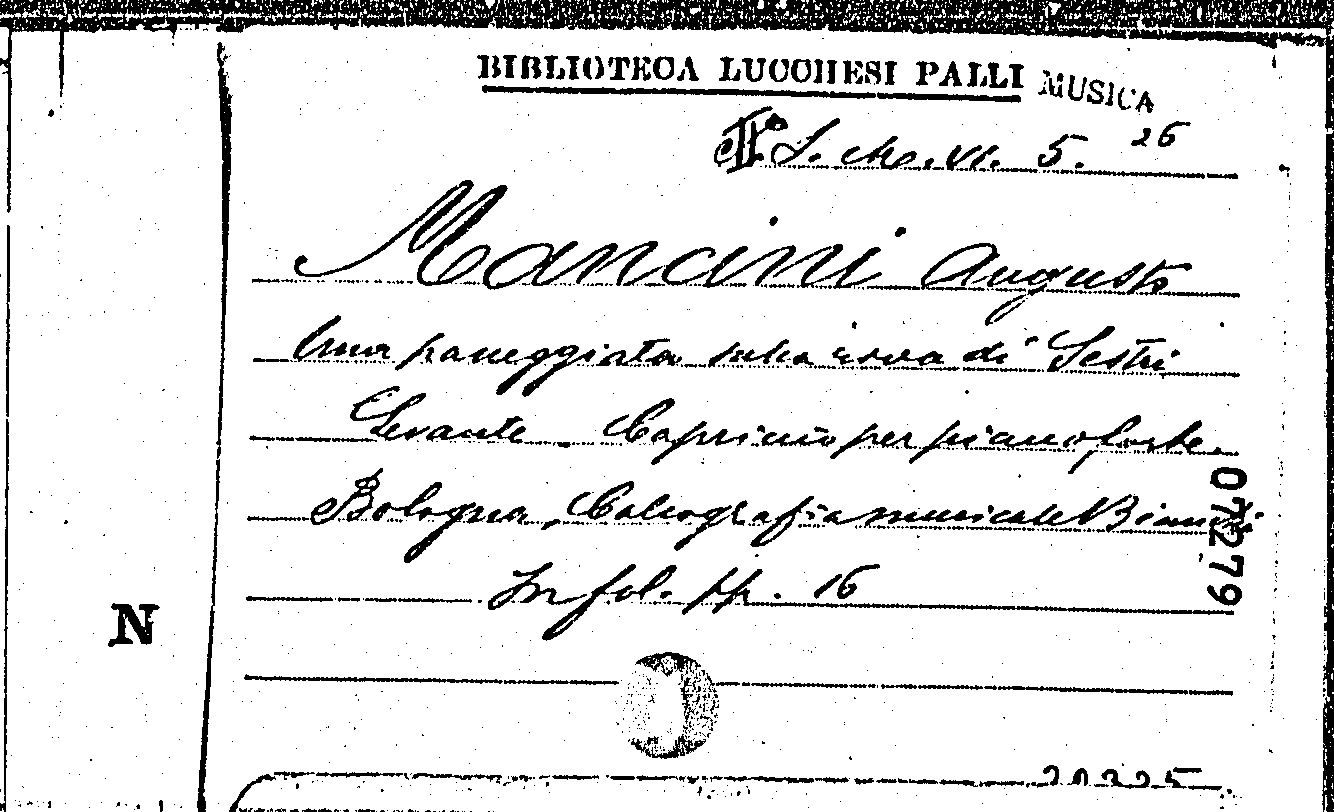 BIBLIOTECA LUCCHESI PALLI MUSICA
S. Mo. VI. 5. 26
Mancini Augusto
Una passeggiata sulla riva di Sestri
Levante - Capriccio per pianoforte.
Bologna, Calcografia musicale Bianchi
In fol. pp. 16
07279
N
20325